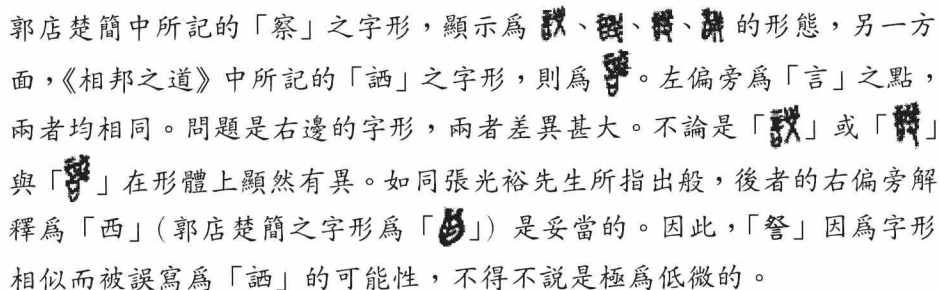 郭店楚簡中所記的「察」之字形，顯示爲、、、的形態，另一方
面，《相邦之道》中所記的「詶」之字形，則爲。左偏旁爲「言」之點，
兩者均相同。問題是右邊的字形，兩者差異甚大。不論是「」或「」
與「」在形體上顯然有異。如同張光裕先生所指出般，後者的右偏旁解
釋爲「西」（郭店楚簡之字形爲「」）是妥當的。因此，「詧」因爲字形
相似而被誤寫爲「」的可能性，不得不説是極爲低微的。